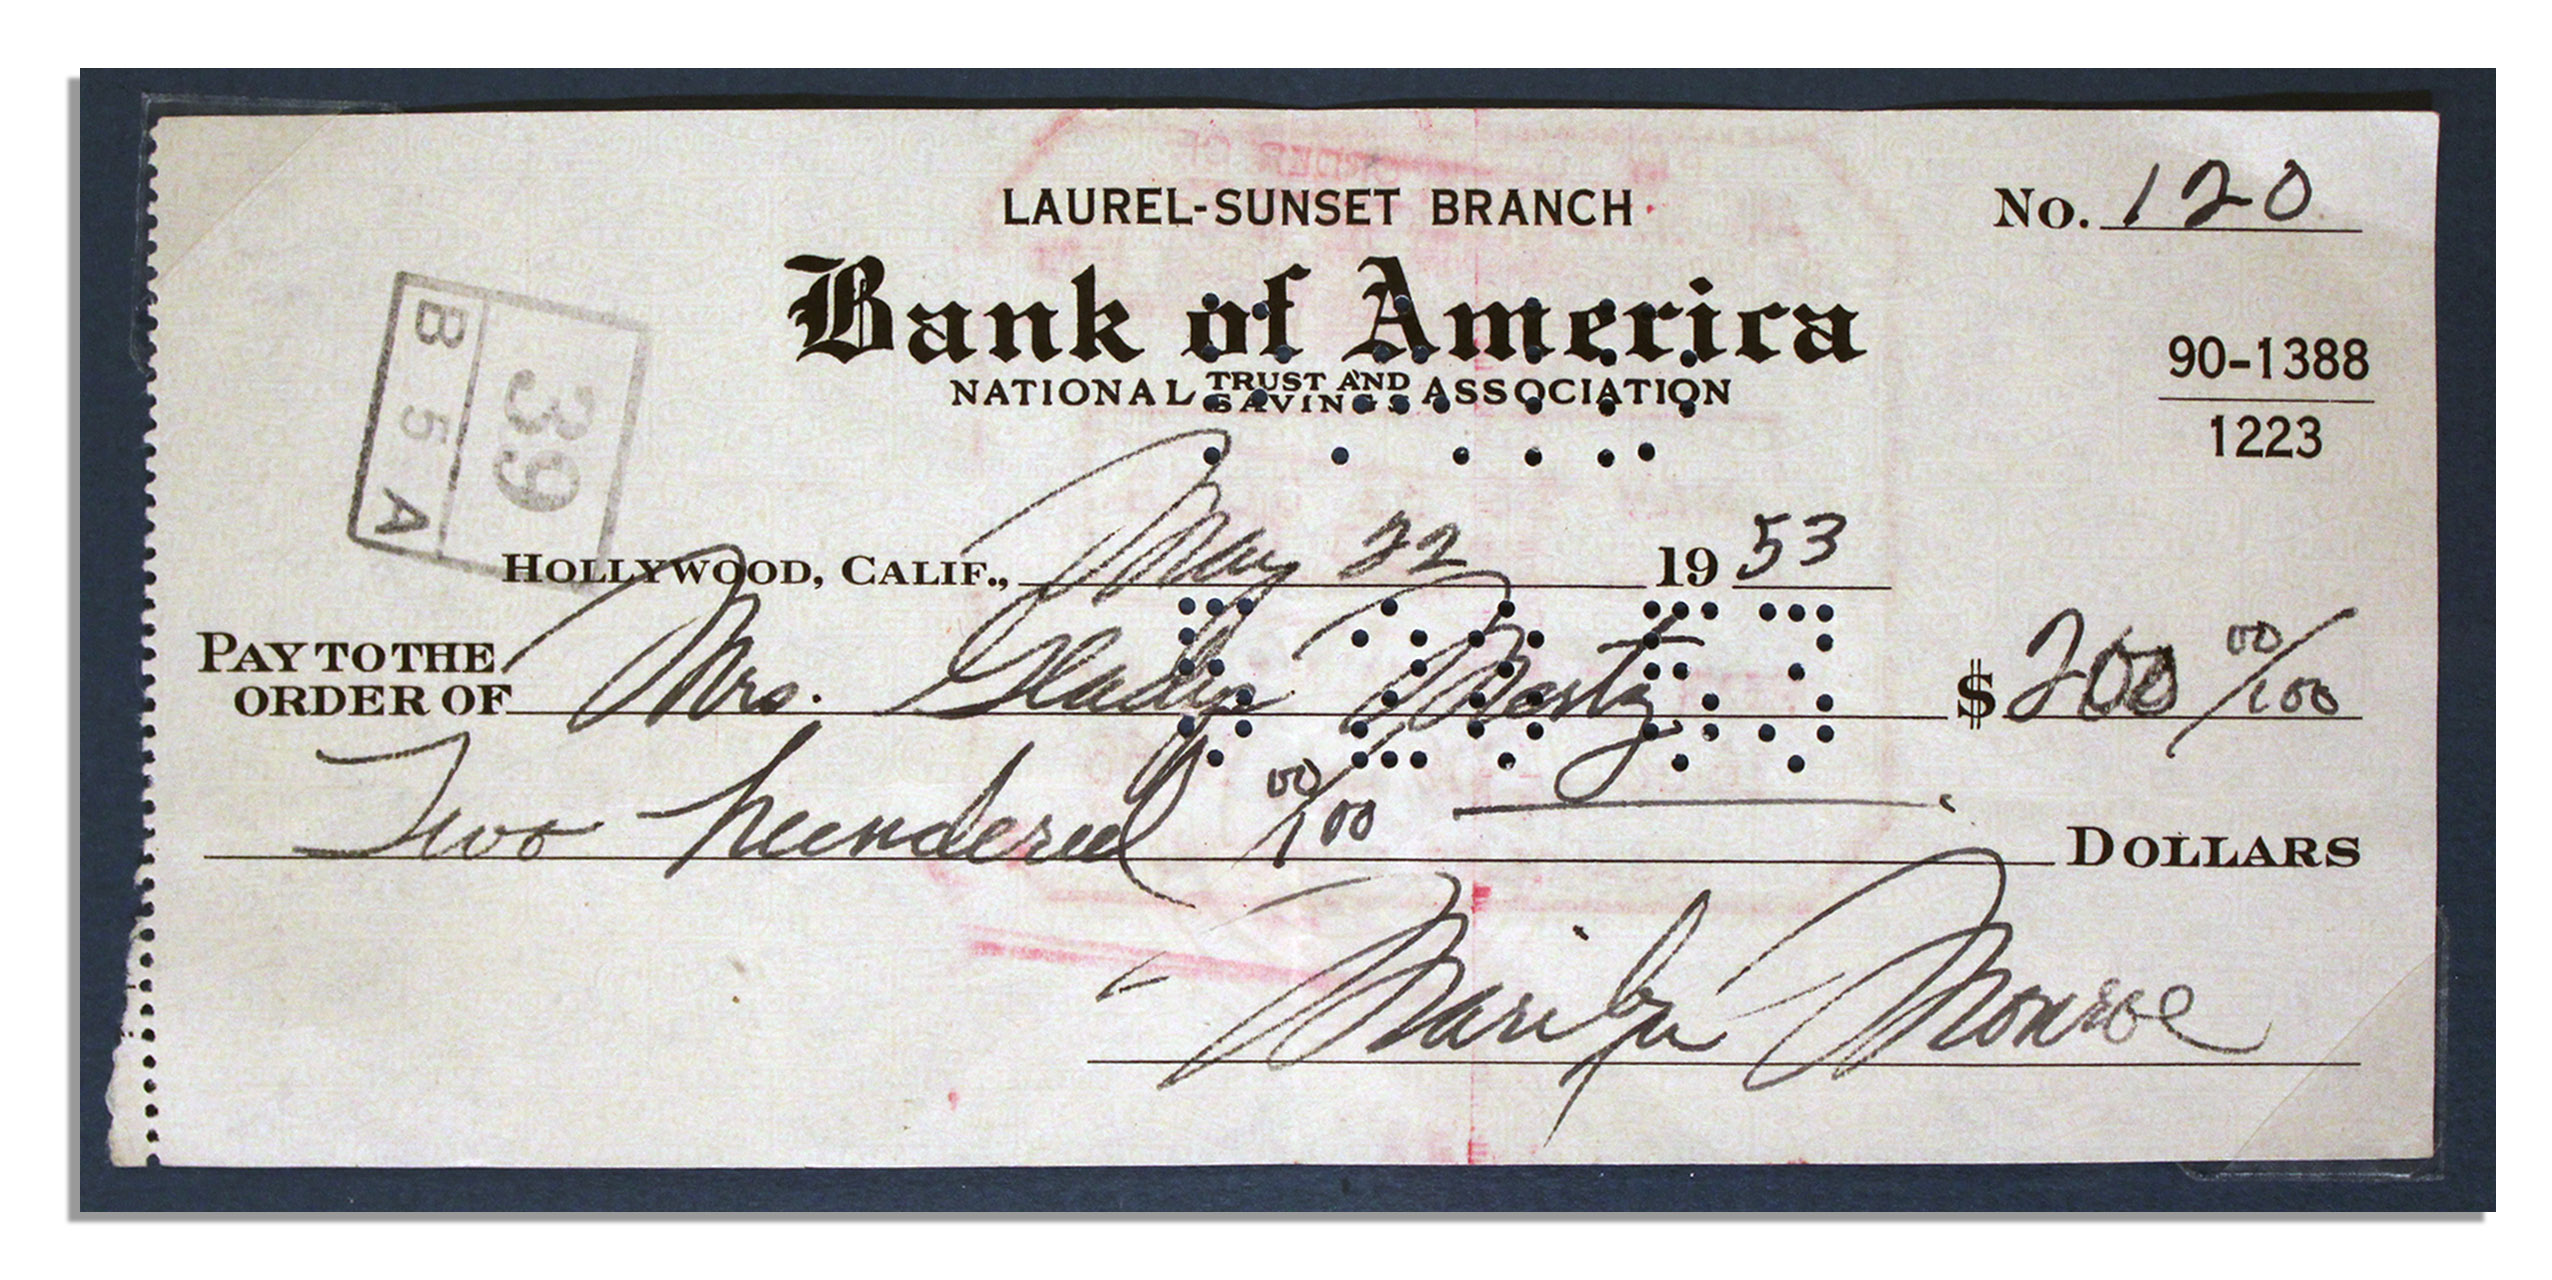 LAUREL-SUNSET BRANCH
No. 120
Bank of America
NATIONAL TRUST AND SAVINGS ASSOCIATION
90-1388
1223
B 5 A
39
HOLLYWOOD, CALIF., May 22 1953
PAY TO THE
ORDER OF Mrs. Gladys $200 00/100
Two hundered 00/100 DOLLARS
Marilyn Monroe